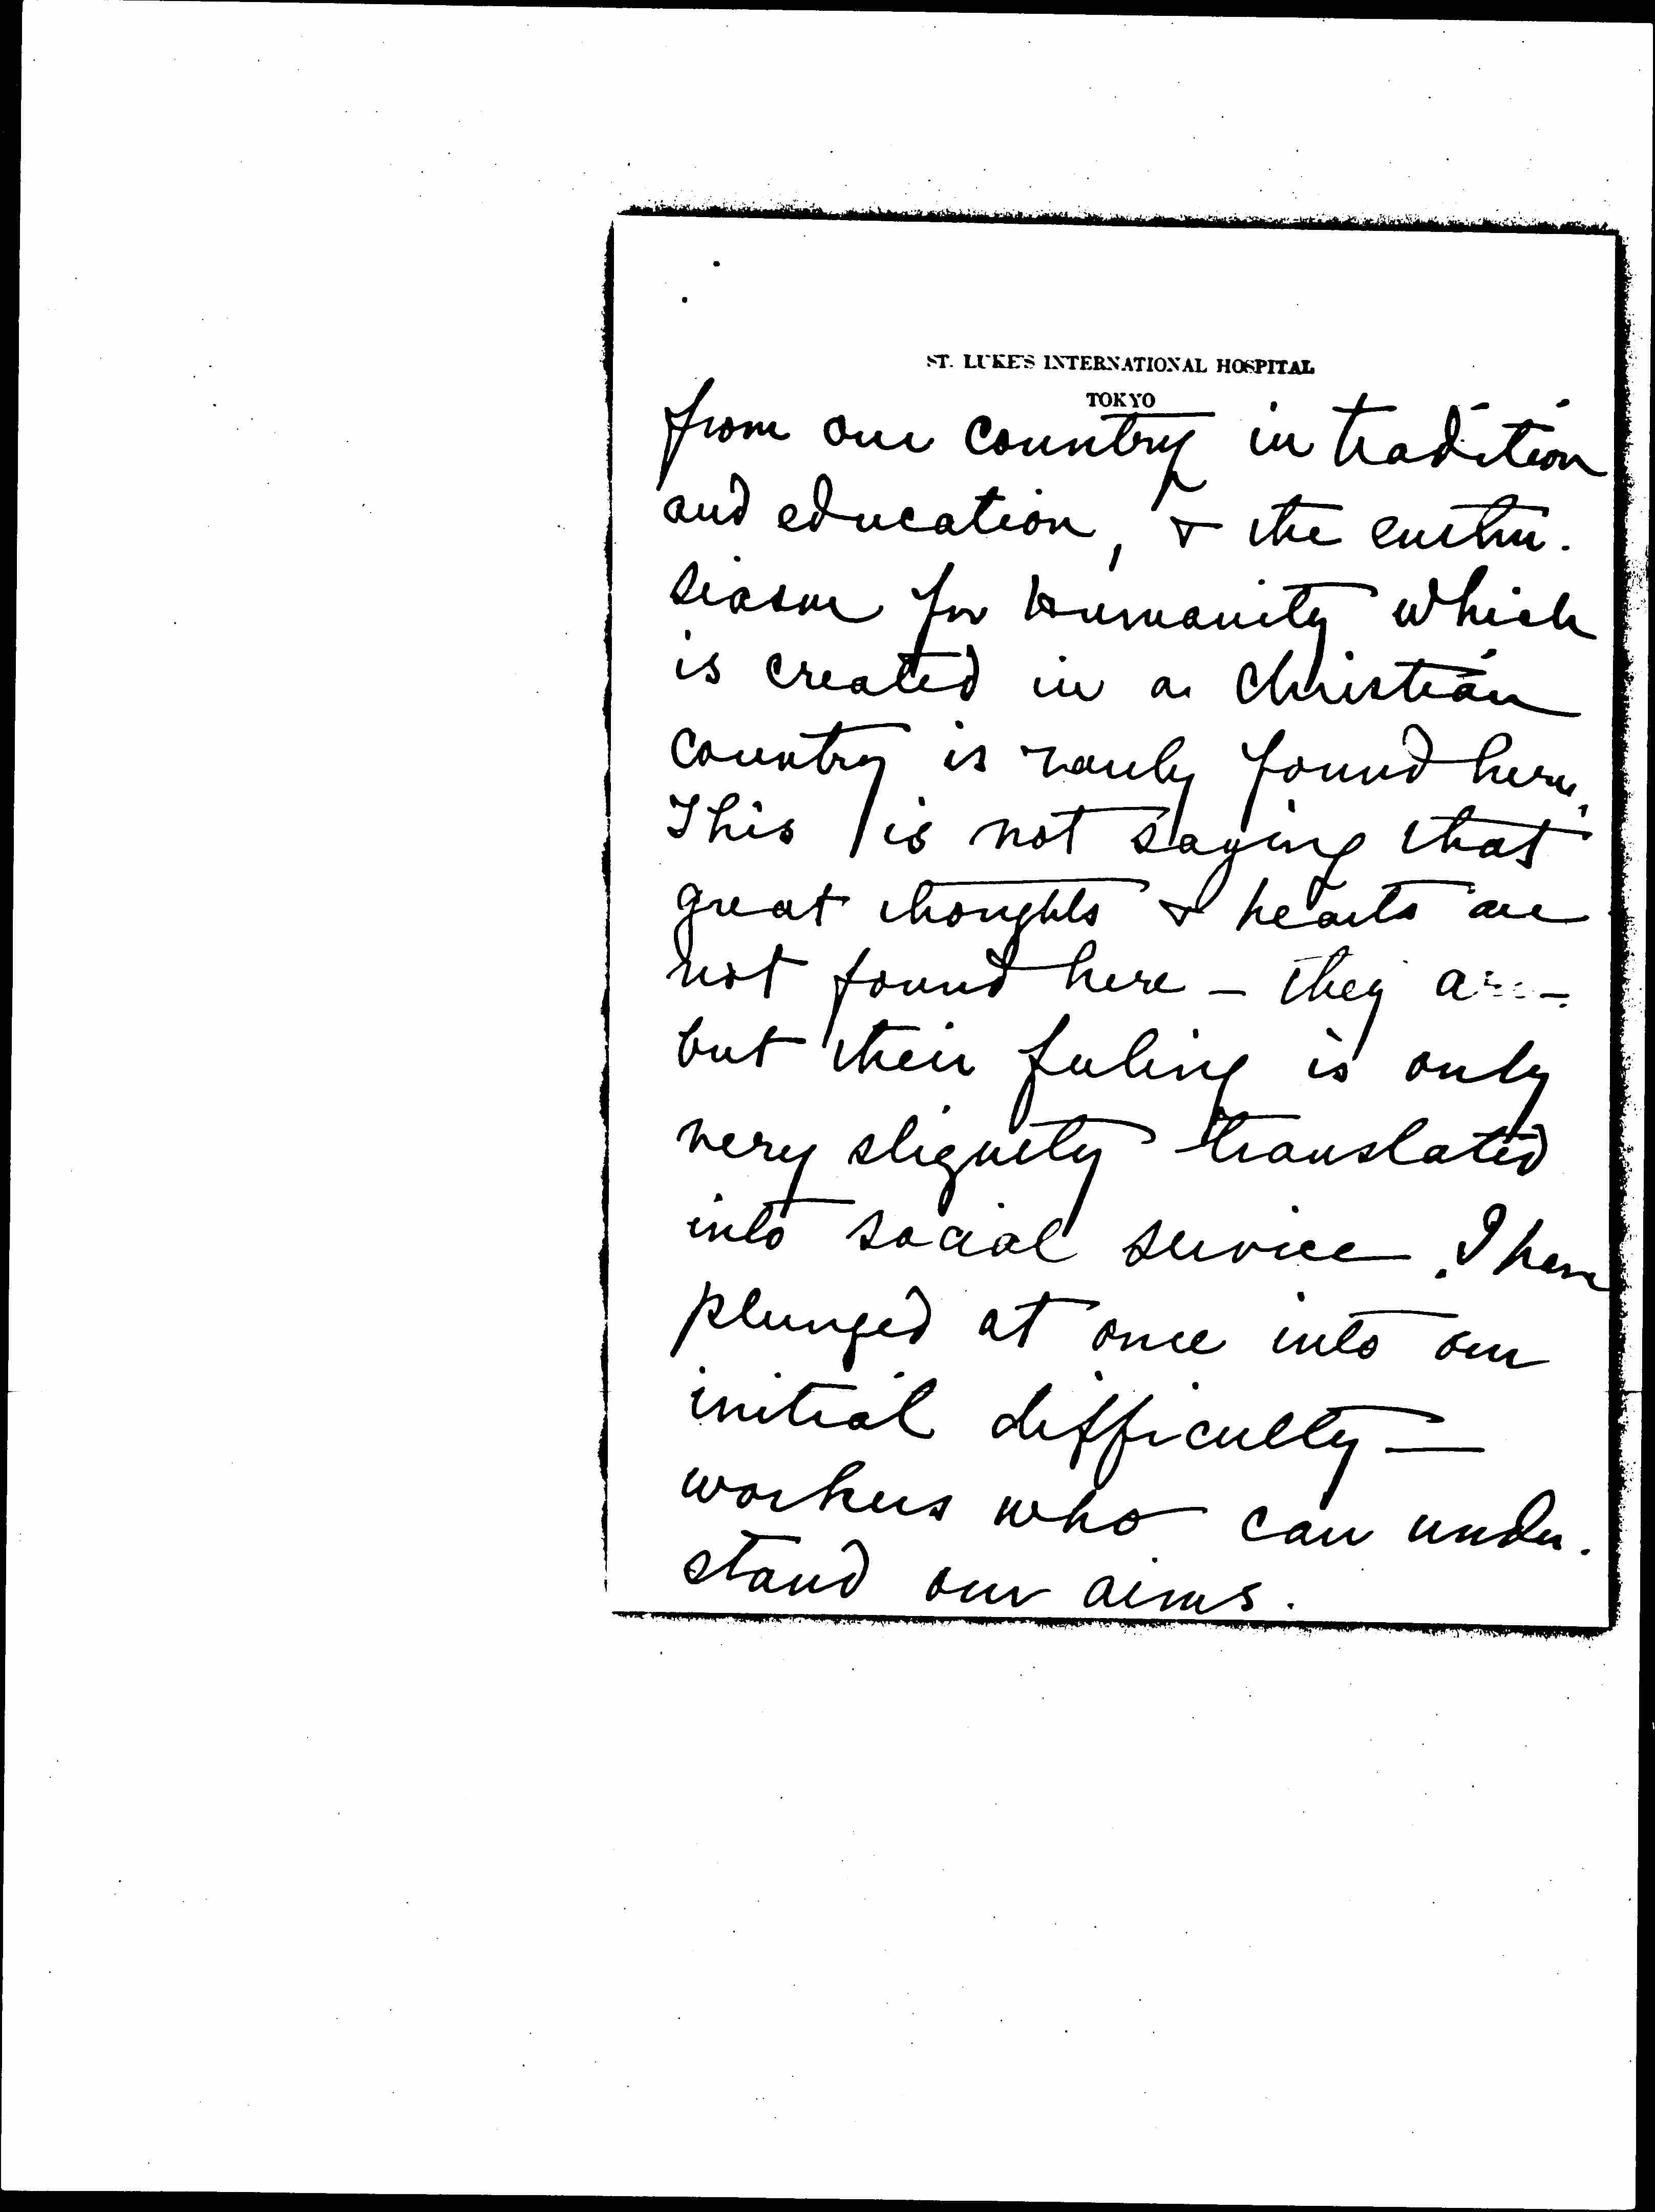 ST. LUKE'S INTERNATIONAL HOSPITAL
TOKYO
from our country in tradition
and education, & the enthu-
siasm for humanity which
is created in a Christian
country is rarely found here.
This is not saying that
great thoughts & hearts are
not found here – they are –
but their feeling is only
very slightly translated
into social service. I have
plunged at once into our
initial difficulty –
workers who can under-
stand our aims.